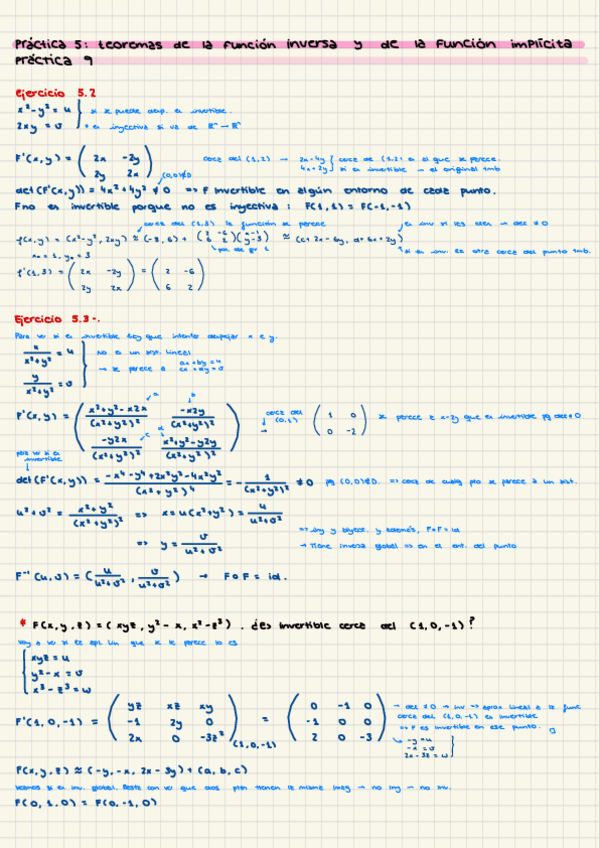 Práctica 5: teoremas de la función inversa y de la función implícita
Práctica 9
Ejercicio 5.2
x² - y² = u } si se puede desp. es invertible.
2xy = v → es inyectiva si va de ℝⁿ → ℝⁿ
F'(x,y) = ( 2x -2y
2y 2x )
cerca del (1,2) → 2x-4y
4x+2y } cerca de (1,2) es al que se parece.
si es invertible → el original tmb
(0,0)∉D
det (F'(x,y)) = 4x² + 4y² ≠ 0 ⇒ F invertible en algún entorno de cada punto.
F no es invertible porque no es inyectiva: F(1,1) = F(-1,-1)
cerca del (1,3) la función se parece
es inv si les den → det ≠ 0
f(x,y) = (x²-y², 2xy) ≈ (-8,6) + ( 2 -6
6 2 ) ( x-1
y-3 ) ≈ (c+2x-6y, d+6x+2y)
x₀=1, y₀=3
si es inv. es otra cerca del punto tmb.
f'(1,3) = ( 2x -2y
2y 2x ) = ( 2 -6
6 2 )
Ejercicio 5.3-.
Para ver si es invertible hay que intentar despejar x e y.
x / x²+y² = u
y / x²+y² = v
no es un sist. lineal
→ se parece a ax+by=u
cx+dy=v
F'(x,y) = ( x²+y²-x2x / (x²+y²)² -x2y / (x²+y²)²
-y2x / (x²+y²)² x²+y²-y2y / (x²+y²)² )
cerca del (0,1) → ( 1 0
0 -2 ) se parece a x-2y que es invertible pq det≠0
para ver si es invertible
det (F'(x,y)) = -x⁴-y⁴+2x²y²-4x²y² / (x²+y²)⁴ = - 1 / (x²+y²)² ≠ 0 pq (0,0)∉D. ⇒ cerca de cualq pto se parece a un sist.
u²+v² = x²+y² / (x²+y²)² ⇒ x = u(x²+y²) = u / u²+v²
⇒ y = v / u²+v²
⇒ iny y biyect. y además, F∘F = id
→ Tiene inversa global ⇒ en el ent. del punto
F⁻¹(u,v) = ( u / u²+v² , v / u²+v² ) → F∘F = id.
* F(x,y,z) = (xyz, y²-x, x²-z³). ¿es invertible cerca del (1,0,-1)?
voy a ver si es apl. lin que se le parece lo es
xyz = u
y²-x = v
x²-z³ = w
F'(1,0,-1) = ( yz xz xy
-1 2y 0
2x 0 -3z² ) (1,0,-1) = ( 0 -1 0
-1 0 0
2 0 -3 )
→ det ≠ 0 → inv ⇒ aprox lineal a la func
cerca del (1,0,-1) es invertible
⇒ F es invertible en ese punto.
-y=u
-x=v
2x-3z=w
F(x,y,z) ≈ (-y,-x, 2x-3y) + (a,b,c)
veamos si es inv. global. Basta con ver que dos ptos tienen la misma imag → no iny → no inv.
F(0,1,0) = F(0,-1,0)